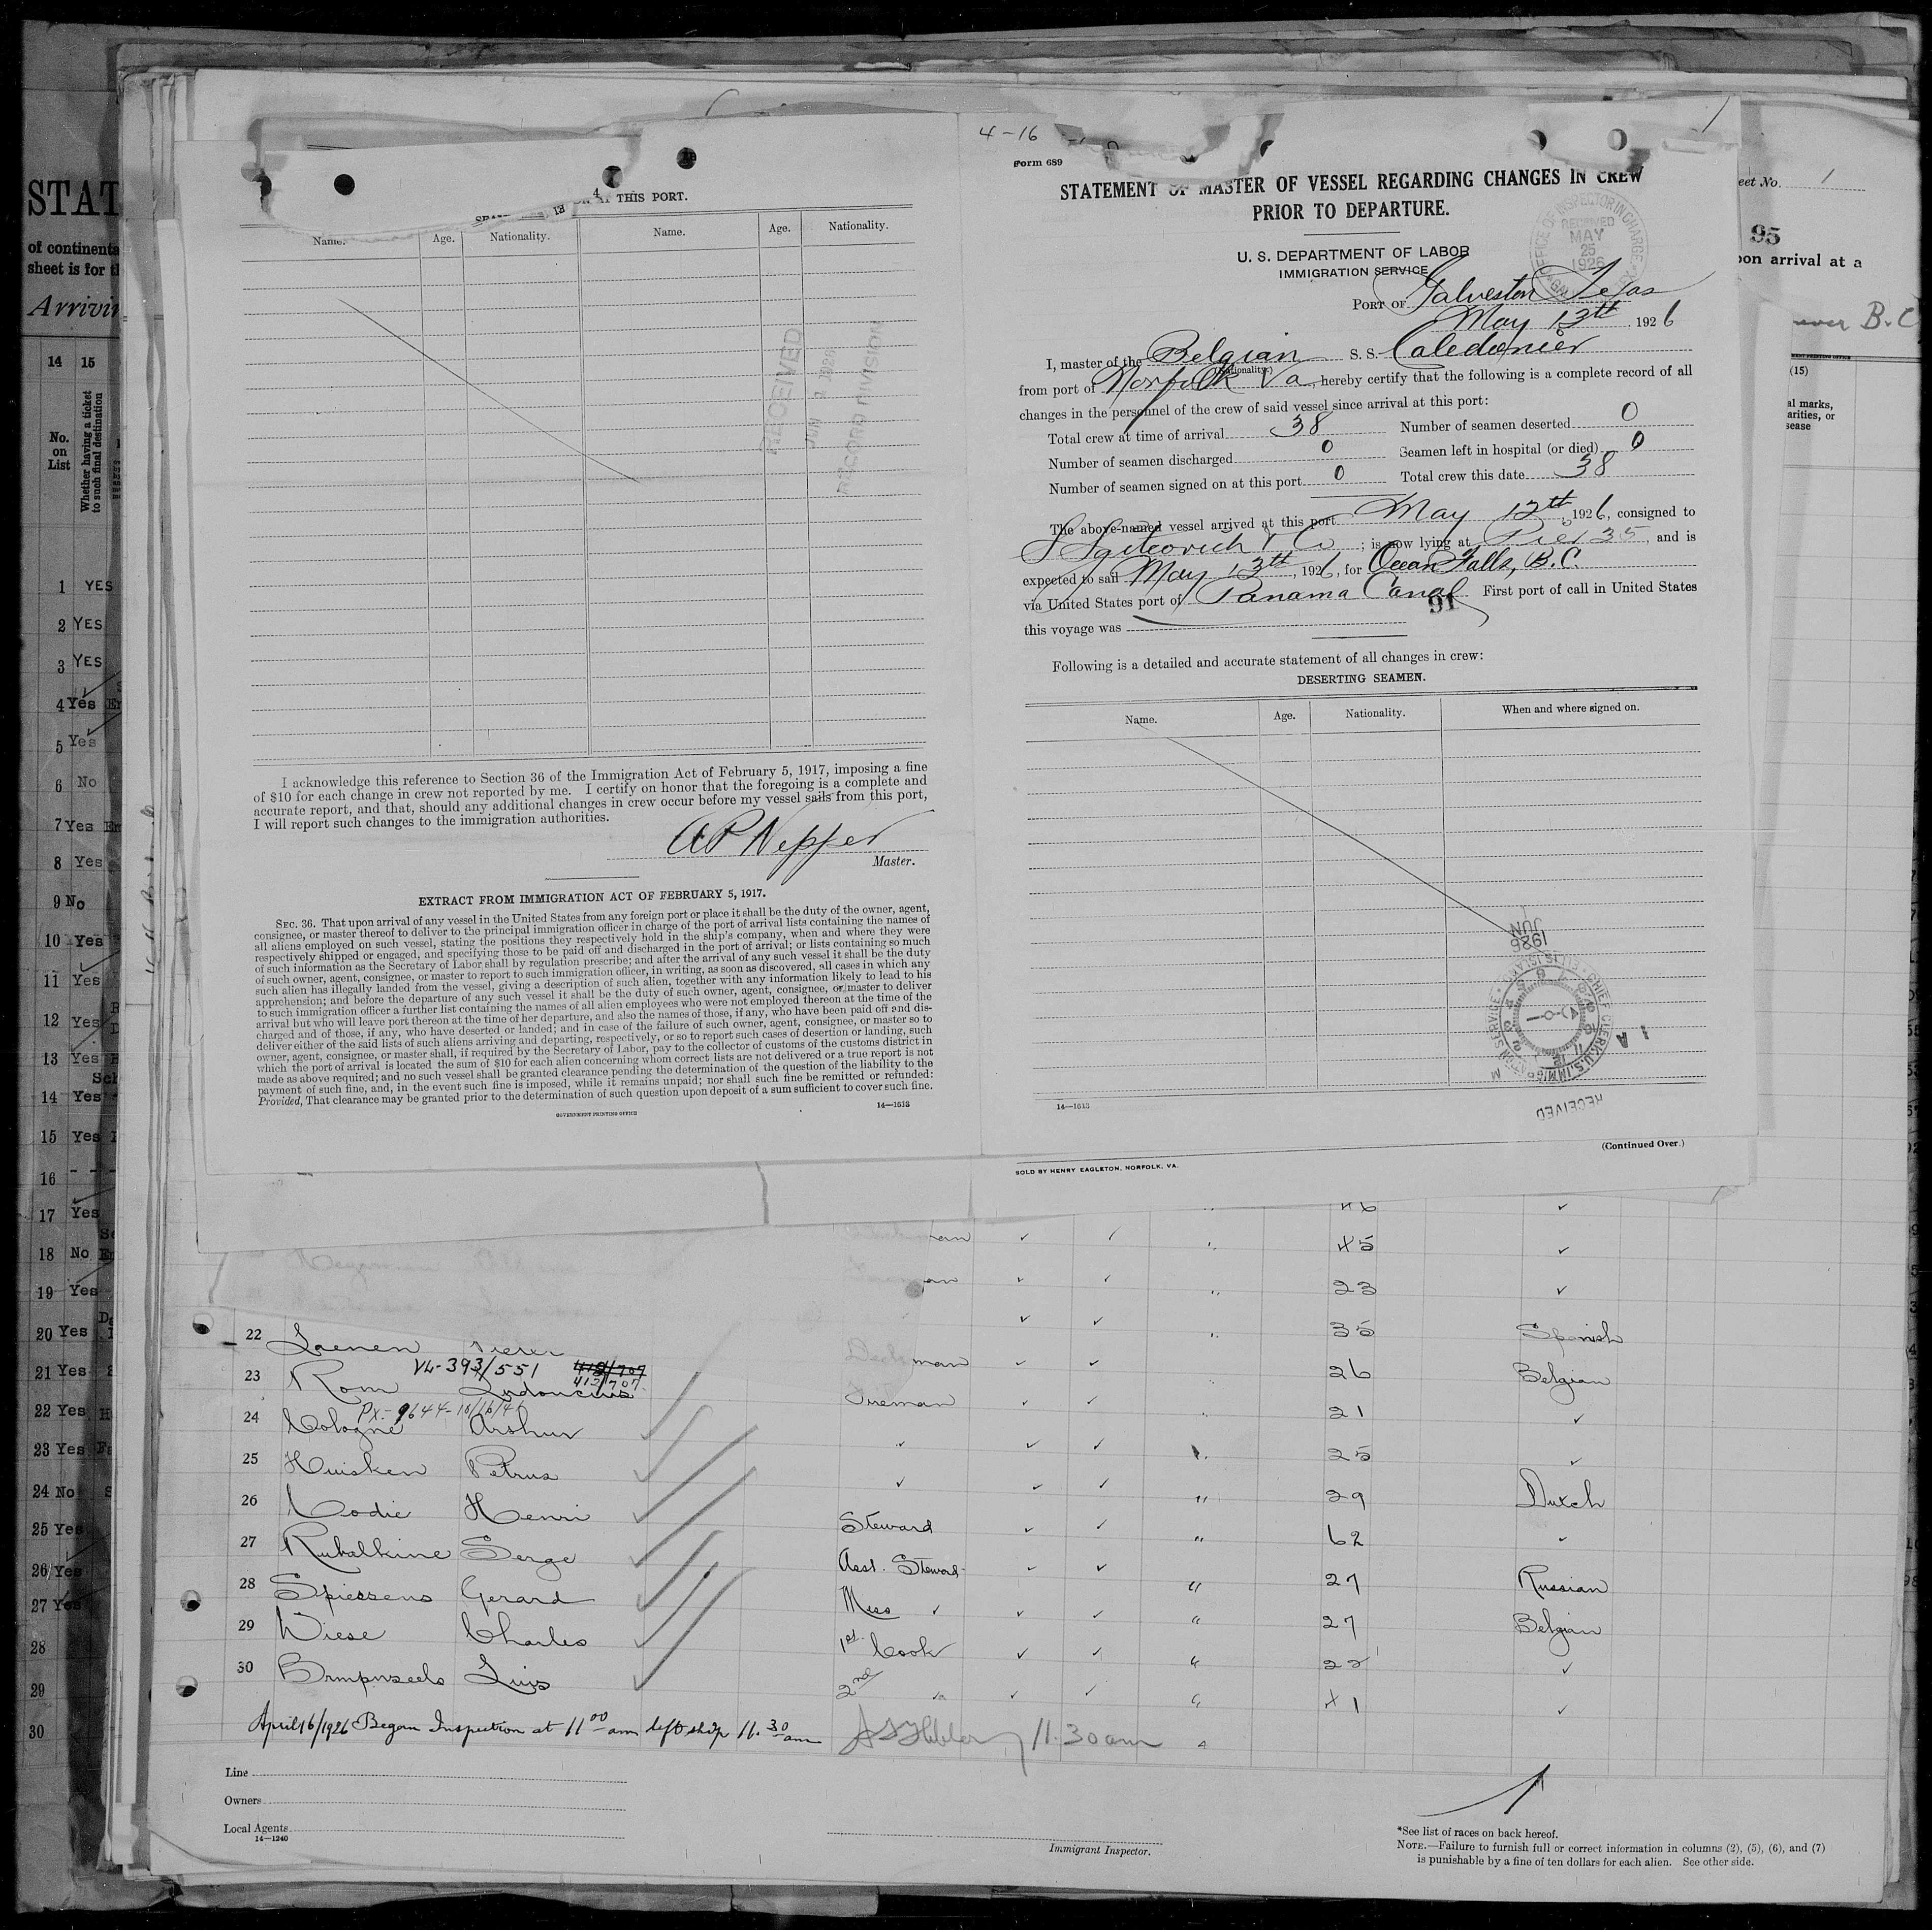 4
THIS PORT.
Name. Age. Nationality. Name. Age. Nationality.
RECEIVED
RECORD DIVISION
I acknowledge this reference to Section 36 of the Immigration Act of February 5, 1917, imposing a fine
of $10 for each change in crew not reported by me. I certify on honor that the foregoing is a complete and
accurate report, and that, should any additional changes in crew occur before my vessel sails from this port,
I will report such changes to the immigration authorities.
Master.
EXTRACT FROM IMMIGRATION ACT OF FEBRUARY 5, 1917.
SEC. 36. That upon arrival of any vessel in the United States from any foreign port or place it shall be the duty of the owner, agent,
consignee, or master thereof to deliver to the principal immigration officer in charge of the port of arrival lists containing the names of
all aliens employed on such vessel, stating the positions they respectively hold in the ship's company, when and where they were
respectively shipped or engaged, and specifying those to be paid off and discharged in the port of arrival; or lists containing so much
of such information as the Secretary of Labor shall by regulation prescribe; and after the arrival of any such vessel it shall be the duty
of such owner, agent, consignee, or master to report to such immigration officer, in writing, as soon as discovered, all cases in which any
such alien has illegally landed from the vessel, giving a description of such alien, together with any information likely to lead to his
apprehension; and before the departure of any such vessel it shall be the duty of such owner, agent, consignee, or master to deliver
to such immigration officer a further list containing the names of all alien employees who were not employed thereon at the time of the
arrival but who will leave port thereon at the time of her departure, and also the names of those, if any, who have been paid off and dis-
charged and of those, if any, who have deserted or landed; and in case of the failure of such owner, agent, consignee, or master so to
deliver either of the said lists of such aliens arriving and departing, respectively, or so to report such cases of desertion or landing, such
owner, agent, consignee, or master shall, if required by the Secretary of Labor, pay to the collector of customs of the customs district in
which the port of arrival is located the sum of $10 for each alien concerning whom correct lists are not delivered or a true report is not
made as above required; and no such vessel shall be granted clearance pending the determination of the question of the liability to the
payment of such fine, and, in the event such fine is imposed, while it remains unpaid; nor shall such fine be remitted or refunded:
Provided, That clearance may be granted prior to the determination of such question upon deposit of a sum sufficient to cover such fine.
GOVERNMENT PRINTING OFFICE 14—1613
4-16
Form 689
STATEMENT OF MASTER OF VESSEL REGARDING CHANGES IN CREW
PRIOR TO DEPARTURE.
U. S. DEPARTMENT OF LABOR
IMMIGRATION SERVICE
OFFICE OF INSPECTOR IN CHARGE
RECEIVED
MAY
25
1926
PORT OF Galveston Texas
May 13th, 1926
I, master of the Belgian S. S. Caledonier
(Nationality.)
from port of Norfolk Va, hereby certify that the following is a complete record of all
changes in the personnel of the crew of said vessel since arrival at this port:
Total crew at time of arrival 38 Number of seamen deserted 0
Number of seamen discharged 0 Seamen left in hospital (or died) 0
Number of seamen signed on at this port 0 Total crew this date 38
The above-named vessel arrived at this port May 12th, 1926, consigned to
& Co; is now lying at Pier 35, and is
expected to sail May 13th, 1926, for Ocean Falls, B.C.
via United States port of Panama Canal First port of call in United States
91
this voyage was
Following is a detailed and accurate statement of all changes in crew:
DESERTING SEAMEN.
Name. Age. Nationality. When and where signed on.
JUN
1926
RECEIVED
14—1613
(Continued Over.)
SOLD BY HENRY EAGLETON, NORFOLK, VA.
STAT
of continenta
sheet is for t
Arrivin
14 15
No.
on
List
Whether having a ticket
to such final destination
1 YES
2 YES
3 YES
4 Yes
5 Yes
6 No
7 Yes
8 Yes
9 No
10 Yes
11 Yes
12 Yes
13 Yes
14 Yes
15 Yes
16
17 Yes
18 No
19 Yes
20 Yes
21 Yes
22 Yes
23 Yes
24 No
25 Yes
26 Yes
27 Yes
28
29
30
eet No. 1
95
on arrival at a
B.C
(15)
al marks,
arities, or
sease
46
45
23
35 Spanish
22 Laenen
man 26 Belgian
VL-393/551
413/707
23 Rom Fireman 21
24 Cologne Arthur 25
25 Huisken Petrus 29 Dutch
26 Codie Henri Steward " 62
27 Rubalkine Serge Asst. Steward " 27 Russian
28 Spiessens Gerard Mess " 27 Belgian
29 Wiese Charles 1st Cook " 22
30 Luis 2nd " 41
April 16/1926 Began Inspection at 11 00 am left ship 11.30 am 11.30 am
Line
Owners
Local Agents
14—1240
Immigrant Inspector.
*See list of races on back hereof.
NOTE.—Failure to furnish full or correct information in columns (2), (5), (6), and (7)
is punishable by a fine of ten dollars for each alien. See other side.